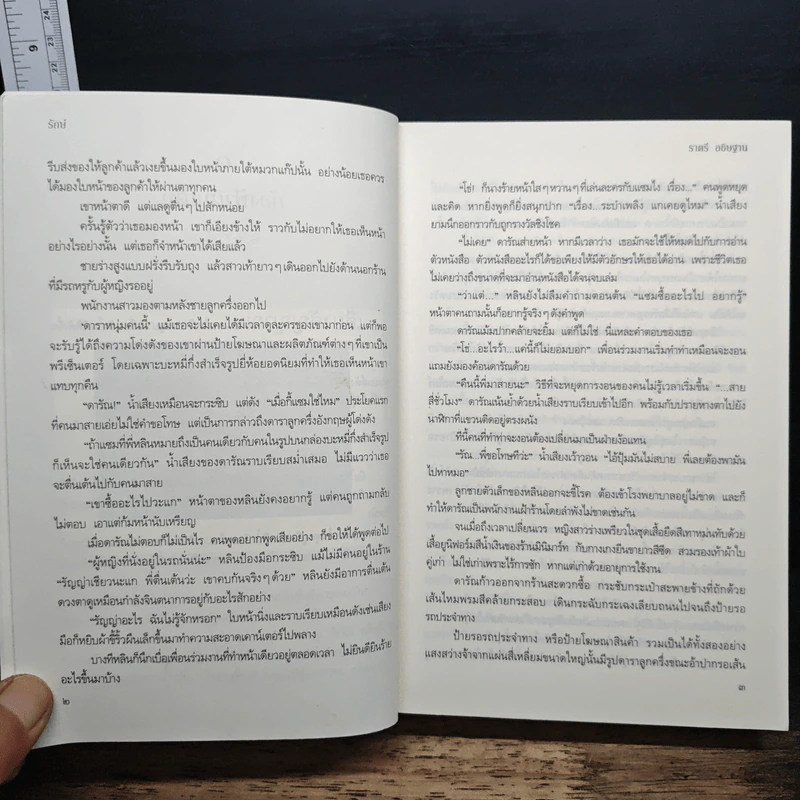 รักษ์
รีบส่งของให้ลูกค้าแล้วเงยขึ้นมองใบหน้าภายใต้หมวกแก๊ปนั้น อย่างน้อยเธอควร
ได้มองใบหน้าของลูกค้าให้ผ่านตาทุกคน
เขาหน้าตาดี แต่แลดูตื่นๆ ไปสักหน่อย
ครั้นรู้ตัวว่าเธอมองหน้า เขาก็เอียงข้างให้ ราวกับไม่อยากให้เธอเห็นหน้า
อย่างไรอย่างนั้น แต่เธอก็จำหน้าเขาได้เสียแล้ว
ชายร่างสูงแบบฝรั่งรีบรับถุง แล้วสาวเท้ายาวๆ เดินออกไปยังด้านนอกร้าน
ที่มีรถหรูกับผู้หญิงรออยู่
พนักงานสาวมองตามหลังชายลูกครึ่งออกไป
'ดาราหนุ่มคนนี้' แม้เธอจะไม่เคยได้มีเวลาดูละครของเขามาก่อน แต่ก็พอ
จะรับรู้ได้ถึงความโด่งดังของเขาผ่านป้ายโฆษณาและผลิตภัณฑ์ต่างๆ ที่เขาเป็น
พรีเซ็นเตอร์ โดยเฉพาะบะหมี่กึ่งสำเร็จรูปยี่ห้อยอดนิยมที่ทำให้เธอเห็นหน้าเขา
แทบทุกคืน
"ดารัณ!" น้ำเสียงเหมือนจะกระซิบ แต่ดัง "เมื่อกี้แซมใช่ไหม" ประโยคแรก
ที่คนมาสายเอ่ยไม่ใช่คำขอโทษ แต่เป็นการกล่าวถึงดาราลูกครึ่งอังกฤษผู้โด่งดัง
"ถ้าแซมที่พี่หลินหมายถึงเป็นคนเดียวกับคนในรูปบนกล่องบะหมี่กึ่งสำเร็จรูป
ก็เห็นจะใช่คนเดียวกัน" น้ำเสียงของดารัณราบเรียบสม่ำเสมอ ไม่มีแววว่าเธอ
จะตื่นเต้นไปกับคนมาสาย
"เขาซื้ออะไรไปวะแก" หน้าตาของหลินยังคงอยากรู้ แต่คนถูกถามกลับ
ไม่ตอบ เอาแต่ก้มหน้านับเหรียญ
เมื่อดารัณไม่ตอบก็ไม่เป็นไร คนพูดอยากพูดเสียอย่าง ก็ขอให้ได้พูดต่อไป
"ผู้หญิงที่นั่งอยู่ในรถนั่นน่ะ" หลินป้องมือกระซิบ แม้ไม่มีคนอยู่ในร้าน
"รัญญ่าเชียวนะแก พี่ตื่นเต้นว่ะ เขาคบกันจริงๆ ด้วย" หลินยังมีอาการตื่นเต้น
ดวงตาดูเหมือนกำลังจินตนาการอยู่กับอะไรสักอย่าง
"รัญญ่าอะไร ฉันไม่รู้จักหรอก" ใบหน้านิ่งและราบเรียบเหมือนดังเช่นเสียง
มือก็หยิบผ้าขี้ริ้วผืนเล็กขึ้นมาทำความสะอาดเคาน์เตอร์ไปพลาง
บางทีหลินก็นึกเบื่อเพื่อนร่วมงานที่ทำหน้าเดียวอยู่ตลอดเวลา ไม่ยินดียินร้าย
อะไรขึ้นมาบ้าง
๒
ราตรี อธิษฐาน
"โธ่! ก็นางร้ายหน้าใสๆ หวานๆ ที่เล่นละครกับแซมไง เรื่อง..." คนพูดหยุด
และคิด หากยิ่งพูดก็ยิ่งสนุกปาก "เรื่อง...ระบำเพลิง แกเคยดูไหม" น้ำเสียง
ยามนึกออกราวกับถูกรางวัลชิงโชค
"ไม่เคย" ดารัณส่ายหน้า หากมีเวลาว่าง เธอมักจะใช้ให้หมดไปกับการอ่าน
ตัวหนังสือ ตัวหนังสืออะไรก็ได้ขอเพียงให้มีตัวอักษรให้เธอได้อ่าน เพราะชีวิตเธอ
ไม่เคยว่างถึงขนาดที่จะมาอ่านหนังสือได้จนจบเล่ม
"ว่าแต่..." หลินยังไม่ลืมคำถามตอนต้น "แซมซื้ออะไรไป อยากรู้"
หน้าตาคนถามนั้นก็อยากรู้จริงๆ ดังคำพูด
ดารัณเม้มปากคล้ายจะยิ้ม แต่ก็ไม่ใช่ นี่แหละคำตอบของเธอ
"โธ่...อะไรว้า...แค่นี้ก็ไม่ยอมบอก" เพื่อนร่วมงานเริ่มทำท่าเหมือนจะงอน
แถมยังมองค้อนดารัณด้วย
"คืนนี้พี่มาสายนะ" วิธีที่จะหยุดการงอนของคนไม่รู้เวลาเริ่มขึ้น "...สาย
สี่ชั่วโมง" ดารัณเน้นย้ำด้วยน้ำเสียงราบเรียบเข้าไปอีก พร้อมกับปรายหางตาไปยัง
นาฬิกาที่แขวนติดอยู่ตรงผนัง
ทีนี้คนที่ทำท่าจะงอนต้องเปลี่ยนมาเป็นฝ่ายง้อแทน
"รัณ...พี่ขอโทษทีว่ะ" น้ำเสียงเว้าวอน "ไอ้ปุ้มมันไม่สบาย พี่เลยต้องพามัน
ไปหาหมอ"
ลูกชายตัวเล็กของหลินออกจะขี้โรค ต้องเข้าโรงพยาบาลอยู่ไม่ขาด และก็
ทำให้ดารัณเป็นพนักงานเฝ้าร้านโดยลำพังไม่ขาดเช่นกัน
จนเมื่อถึงเวลาเปลี่ยนเวร หญิงสาวร่างเพรียวในชุดเสื้อยืดสีเทาหม่นทับด้วย
เสื้อยูนิฟอร์มสีน้ำเงินของร้านมินิมาร์ท กับกางเกงยีนขายาวสีซีด สวมรองเท้าผ้าใบ
คู่เก่า ไม่ใช่เก่าเพราะไร้การซัก หากแต่เก่าด้วยอายุการใช้งาน
ดารัณก้าวออกจากร้านสะดวกซื้อ กระชับกระเป๋าสะพายข้างที่ถักด้วย
เส้นไหมพรมสีคล้ายกระสอบ เดินกระฉับกระเฉงเลียบถนนไปจนถึงป้ายรอ
รถประจำทาง
ป้ายรอรถประจำทาง หรือป้ายโฆษณาสินค้า รวมเป็นได้ทั้งสองอย่าง
แสงสว่างจ้าจากแผ่นสี่เหลี่ยมขนาดใหญ่นั้นมีรูปดาราลูกครึ่งขณะอ้าปากรอเส้น
๓
9
22
23
24